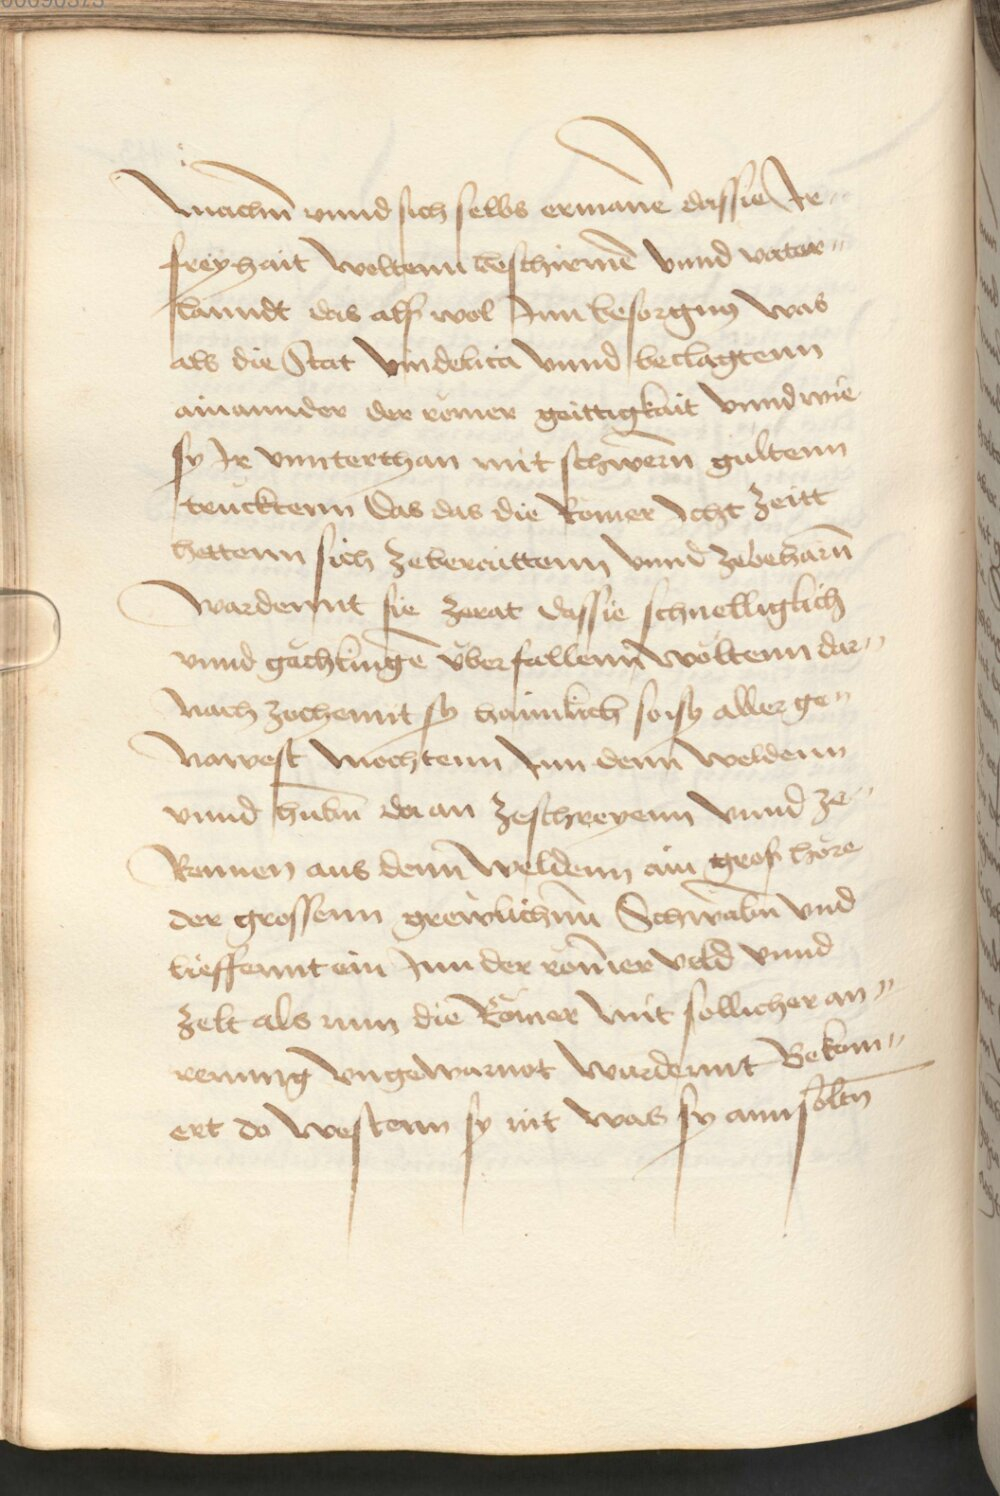 machn̄ vnnd sich selbs ermanē dassie Ir
freyhait woltenn beschirmē vnnd vater"
lanndt das alß wol Inn besorgnus was
als die Stat vindelica vnnd beclagtenn
ainannder der römer geittigkait vnnd wie
sy Ir vnnterthan mit schwern̄ gültenn
trucktenn Das das die Römer Icht Zeitt
hettenn sich Zeberaittenn vnnd Zebeharn̄
wardennt sie Zerat dassie schnelliglich
vnnd gächlingē überfallenn wöltenn dar"
nach Zochennt sy haimlich so sy aller ge"
nawest mochtenn Inn denn̄ weldenn
vnnd hubn̄ da an Zeschreyenn vnnd Ze"
Rennen aus denn̄ weldenn ain groß höre
der grossenn grewlichnn̄ Schwabn̄ vnd
lieffennt ein Inn der römer veld vnnd
Zelt als nun die Römer mit sollicher an"
rennung vngewarnot wurdennt Bekom"
ert do westenn sy nit was sy ann soltn̄